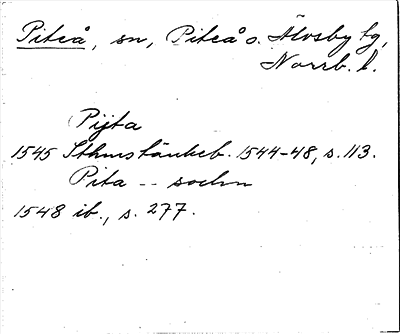 Piteå, sn, Piteå o. Älvsby tg,
Norrb. l.
Pijta
1545 Sthmstänkeb. 1544-48, s. 113.
Pita -- sochn
1548 ib., s. 277.